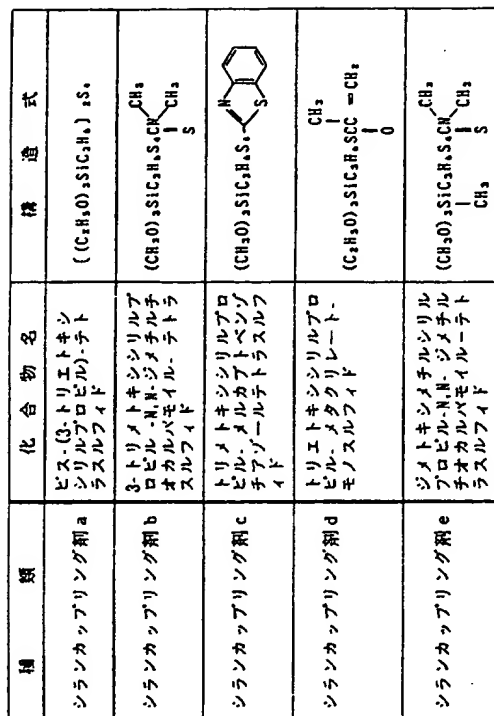 種 類
化 合 物 名
構 造 式
シランカップリング剤a
ビス-(3-トリエトキシ
シリルプロピル)-テト
ラスルフィド
((C₂H₅O)₃SiC₃H₆) ₂S₄
シランカップリング剤b
3-トリメトキシシリルプ
ロピル -N,N- ジメチルチ
オカルバモイル- テトラ
スルフィド
CH₃
(CH₃O)₃SiC₃H₆S₄CN
CH₃
S
シランカップリング剤c
トリメトキシシリルプロ
ピル- メルカプトベンゾ
チアゾールテトラスルフ
ィド
N
(CH₃O)₃SiC₃H₆S₄
S
シランカップリング剤d
トリエトキシシリルプロ
ピル- メタクリレート-
モノスルフィド
CH₃
(C₂H₅O)₃SiC₃H₆SCC =CH₂
O
シランカップリング剤e
ジメトキシメチルシリル
プロピル-N,N- ジメチル
チオカルバモイルーテト
ラスルフィド
CH₃
CH₃
(CH₃O)₂SiC₃H₆S₄CN
CH₃
S